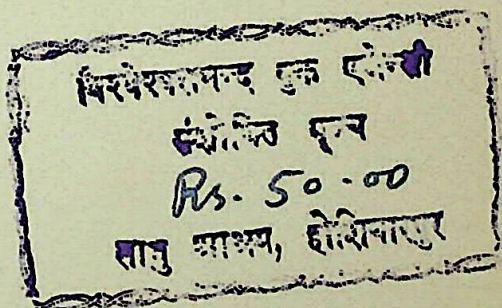 विश्वेश्वरानन्द बुक एजेन्सी
संशोधित मूल्य
Rs. 50.00
साधु आश्रम, होशियारपुर